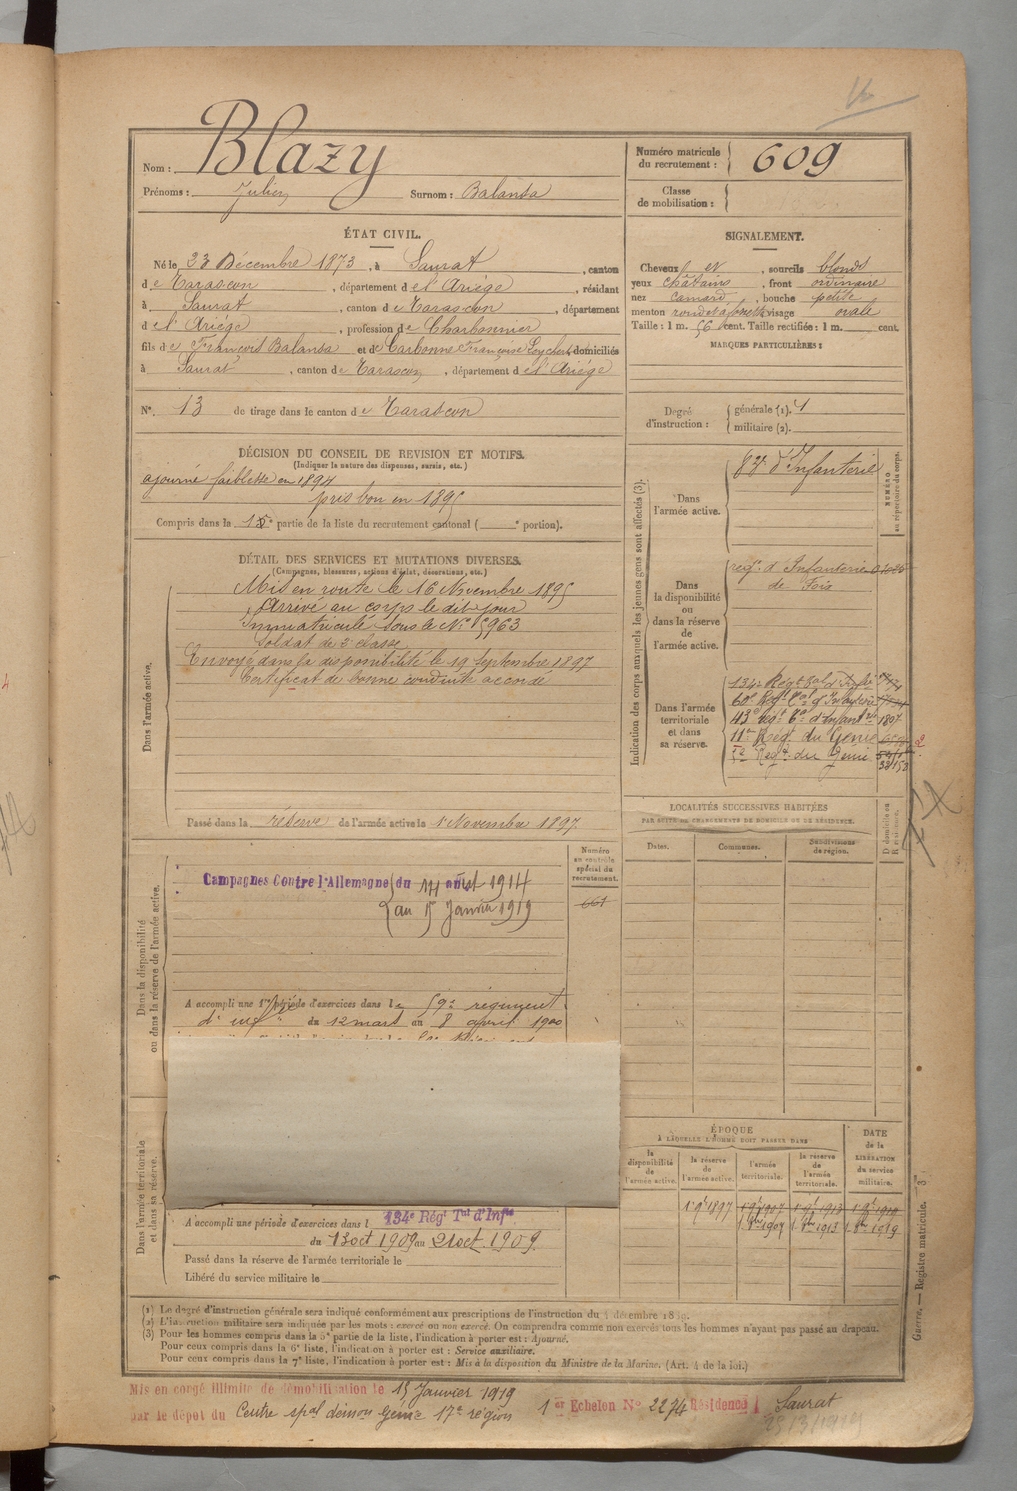 16
Nom : Blazy
Prénoms : Julien Surnom : Balansa
Numéro matricule du recrutement : 609
Classe de mobilisation :
ÉTAT CIVIL.
Né le 23 Décembre 1873, à Saurat, canton
de Tarascon, département de l'Ariège, résidant
à Saurat, canton de Tarascon, département
de l'Ariège, profession de Charbonnier
fils de François Balansa et de Carbonne Françoise domiciliés
à Saurat, canton de Tarascon, département de l'Ariège
N°. 13 de tirage dans le canton de Tarascon
SIGNALEMENT.
Cheveux et, sourcils blonds
yeux châtains, front ordinaire
nez camard, bouche petite
menton rond visage ovale
Taille : 1 m. 56 cent. Taille rectifiée : 1 m. cent.
MARQUES PARTICULIÈRES :
Degré d'instruction : générale (1).
militaire (2).
DÉCISION DU CONSEIL DE REVISION ET MOTIFS.
(Indiquer la nature des dispenses, sursis, etc.)
ajourné faiblesse en 1894
pris bon en 1895
Compris dans la partie de la liste du recrutement cantonal ( e portion).
DÉTAIL DES SERVICES ET MUTATIONS DIVERSES.
(Campagnes, blessures, actions d'éclat, décorations, etc.)
Dans l'armée active.
Mis en route le 16 Novembre 1895
Arrivé au corps le dit jour
Immatriculé sous le N° 5963
Soldat de 2e classe
Envoyé dans la disponibilité le 19 Septembre 1897
Certificat de bonne conduite accordé
Passé dans la réserve de l'armée active le 1 Novembre 1897
Indication des corps auxquels les jeunes gens sont affectés (3).
NUMÉRO au répertoire du corps.
Dans l'armée active.
d'Infanterie
Dans la disponibilité ou dans la réserve de l'armée active.
reg.t d'Infanterie
de Foix
Dans l'armée territoriale et dans sa réserve.
134e Régt tal d'Infie
60e Régt d'Infanterie
43e régt d'Infant 1807
11e Régt du Génie
2e Régt du Génie
LOCALITÉS SUCCESSIVES HABITÉES
PAR SUITE DE CHANGEMENTS DE DOMICILE OU DE RÉSIDENCE.
Dates. Communes. Subdivisions de région. D domicile ou R résidence.
Dans la disponibilité ou dans la réserve de l'armée active.
Numéro au contrôle spécial du recrutement.
661
Campagnes Contre l'Allemagne du 14 août 1914
au 15 Janvier 1919
A accompli une 1re période d'exercices dans le 59e régiment
d'inf du 12 mars au 8 avril 1900
Dans l'armée territoriale et dans sa réserve.
A accompli une période d'exercices dans l 134e Régt Tal d'Infie
du 13 oct 1909 au 21 oct. 1909.
Passé dans la réserve de l'armée territoriale le
Libéré du service militaire le
ÉPOQUE
À LAQUELLE L'HOMME DOIT PASSER DANS
DATE de la LIBÉRATION du service militaire.
la disponibilité de l'armée active. la réserve de l'armée active. l'armée territoriale. la réserve de l'armée territoriale.
1907 1913 1919
(1) Le degré d'instruction générale sera indiqué conformément aux prescriptions de l'instruction du 4 décembre 1889.
(2) L'instruction militaire sera indiquée par les mots : exercé ou non exercé. On comprendra comme non exercés tous les hommes n'ayant pas passé au drapeau.
(3) Pour les hommes compris dans la 5e partie de la liste, l'indication à porter est : Ajourné.
Pour ceux compris dans la 6e liste, l'indication à porter est : Service auxiliaire.
Pour ceux compris dans la 7e liste, l'indication à porter est : Mis à la disposition du Ministre de la Marine. (Art. 4 de la loi.)
Guerre. — Registre matricule. 3
Mis en congé illimité de démobilisation le 15 Janvier 1919
par le dépôt du Centre spal démon Génie 17e région 1er Echelon N° 2274 Résidence Saurat